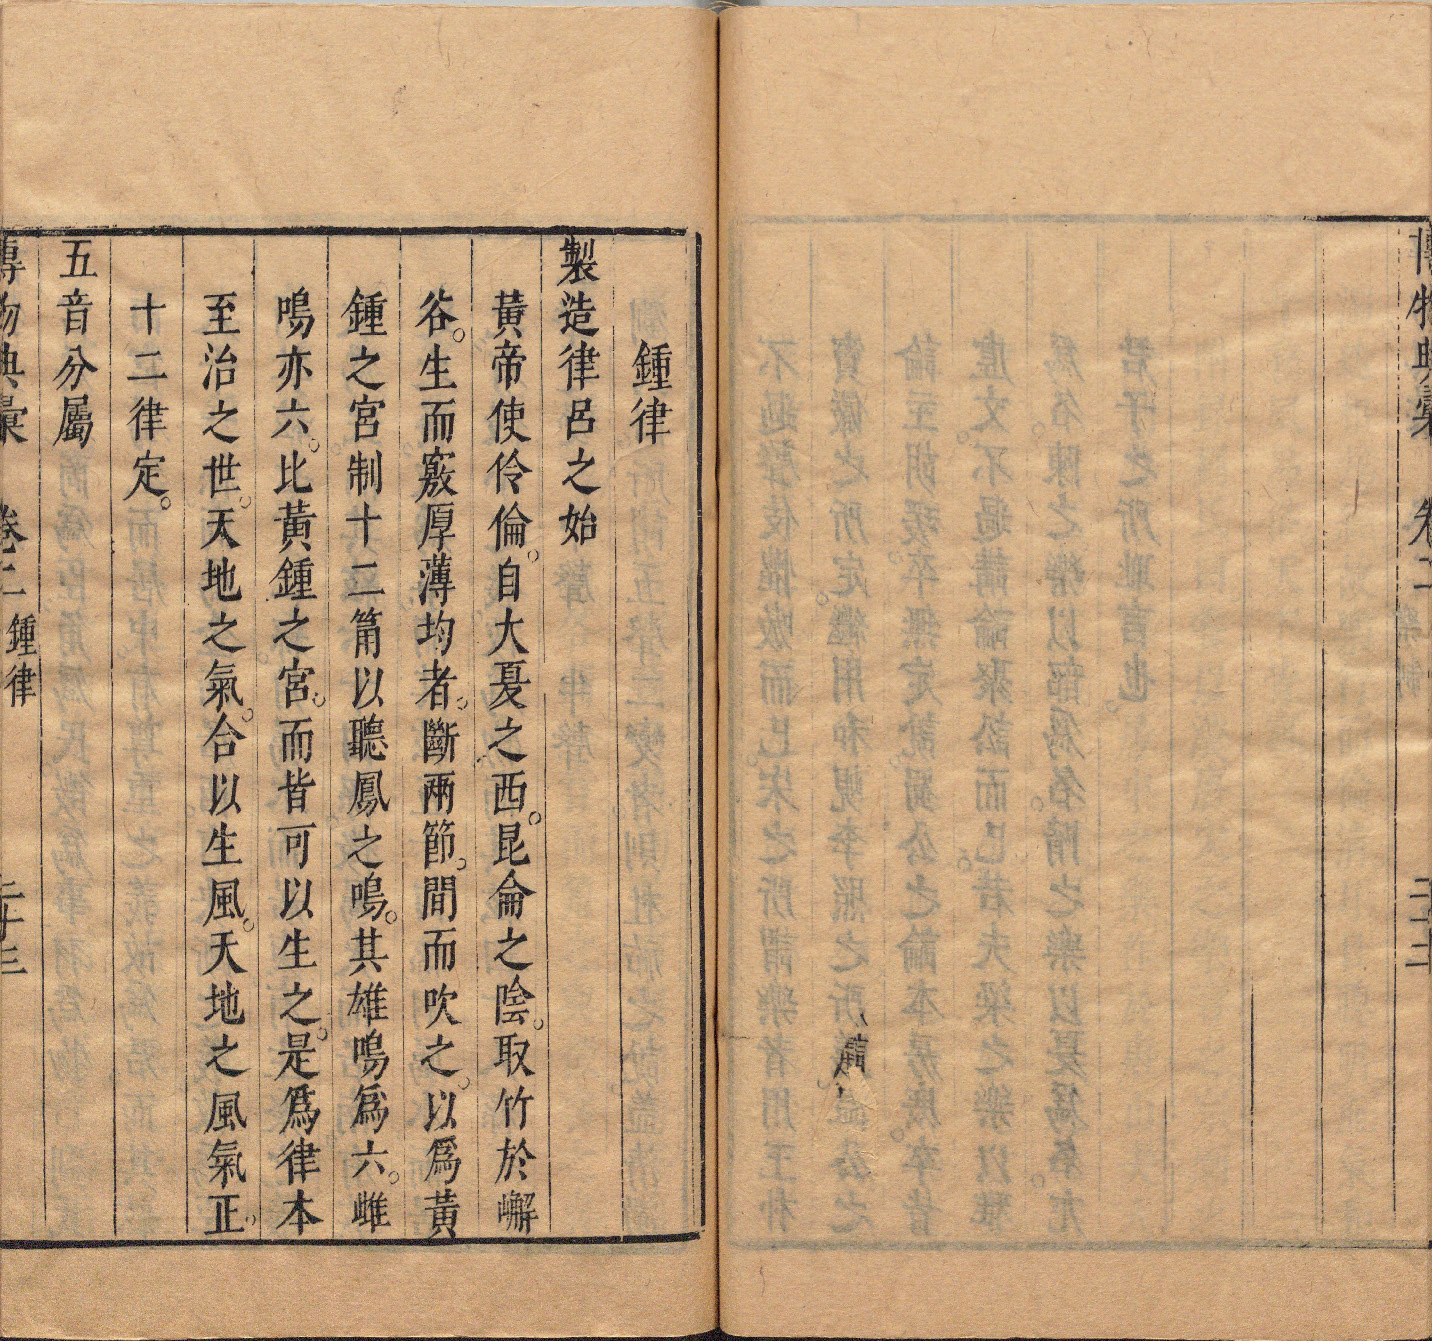 博物典彙 卷二 二十二
鍾律
製造律呂之始
黃帝使伶倫。自大夏之西。昆侖之陰。取竹於嶰
谷。生而竅厚薄均者。斷兩節。間而吹之。以爲黃
鍾之宮制十二筩以聽鳳之鳴。其雄鳴爲六。雌
鳴亦六。比黃鍾之宮。而皆可以生之。是爲律本
至治之世。天地之氣。合以生風。天地之風氣正。
十二律定。
五音分屬
博物典彙 卷二 鍾律 二十三